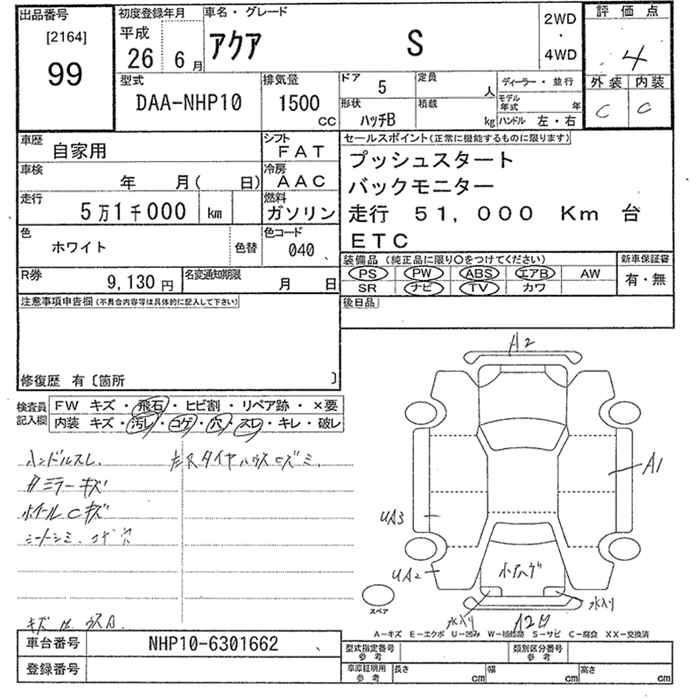 出品番号
[2164]
99
初度登録年月
平成
26 年 6 月
車名・グレード
アクア S
2WD
・
4WD
評価点
4
外装 内装
C C
型式
DAA-NHP10
排気量
1500
CC
ドア 5
定員 人
形状 ハッチB
積載 kg
ディーラー・並行
モデル年式 年
ハンドル 左・右
車歴 自家用
シフト FAT
車検 年 月( 日)
冷房 AAC
走行 5万1千000 km
燃料 ガソリン
色 ホワイト 色替
色コード 040
R券 9,130 円
名変通知期限 月 日
セールスポイント(正常に機能するものに限ります)
プッシュスタート
バックモニター
走行 51,000 Km 台
ETC
装備品 (純正品に限り○をつけてください)
PS PW ABS エアB AW
SR ナビ TV カワ
新車保証書
有・無
後日品
注意事項申告欄(不具合内容等は具体的に記入して下さい)
修復歴 有〔箇所 〕
検査員記入欄
FW キズ・飛石・ヒビ割・リペア跡・×要
内装 キズ・汚レ・コゲ・穴・スレ・キレ・破レ
ハンドルスレ
ミラーキズ
ホイールCキズ
シートシミ コゲ穴
A2
A1
UA3
UA2
小ハゲ
水入り
水入り
スペア
A-キズ E-エクボ U-凹み W-補修跡 S-サビ C-腐食 XX-交換済
車台番号 NHP10-6301662
登録番号
型式指定番号 参考
類別区分番号 参考
車庫証明用 参考
長さ cm 幅 cm 高さ cm